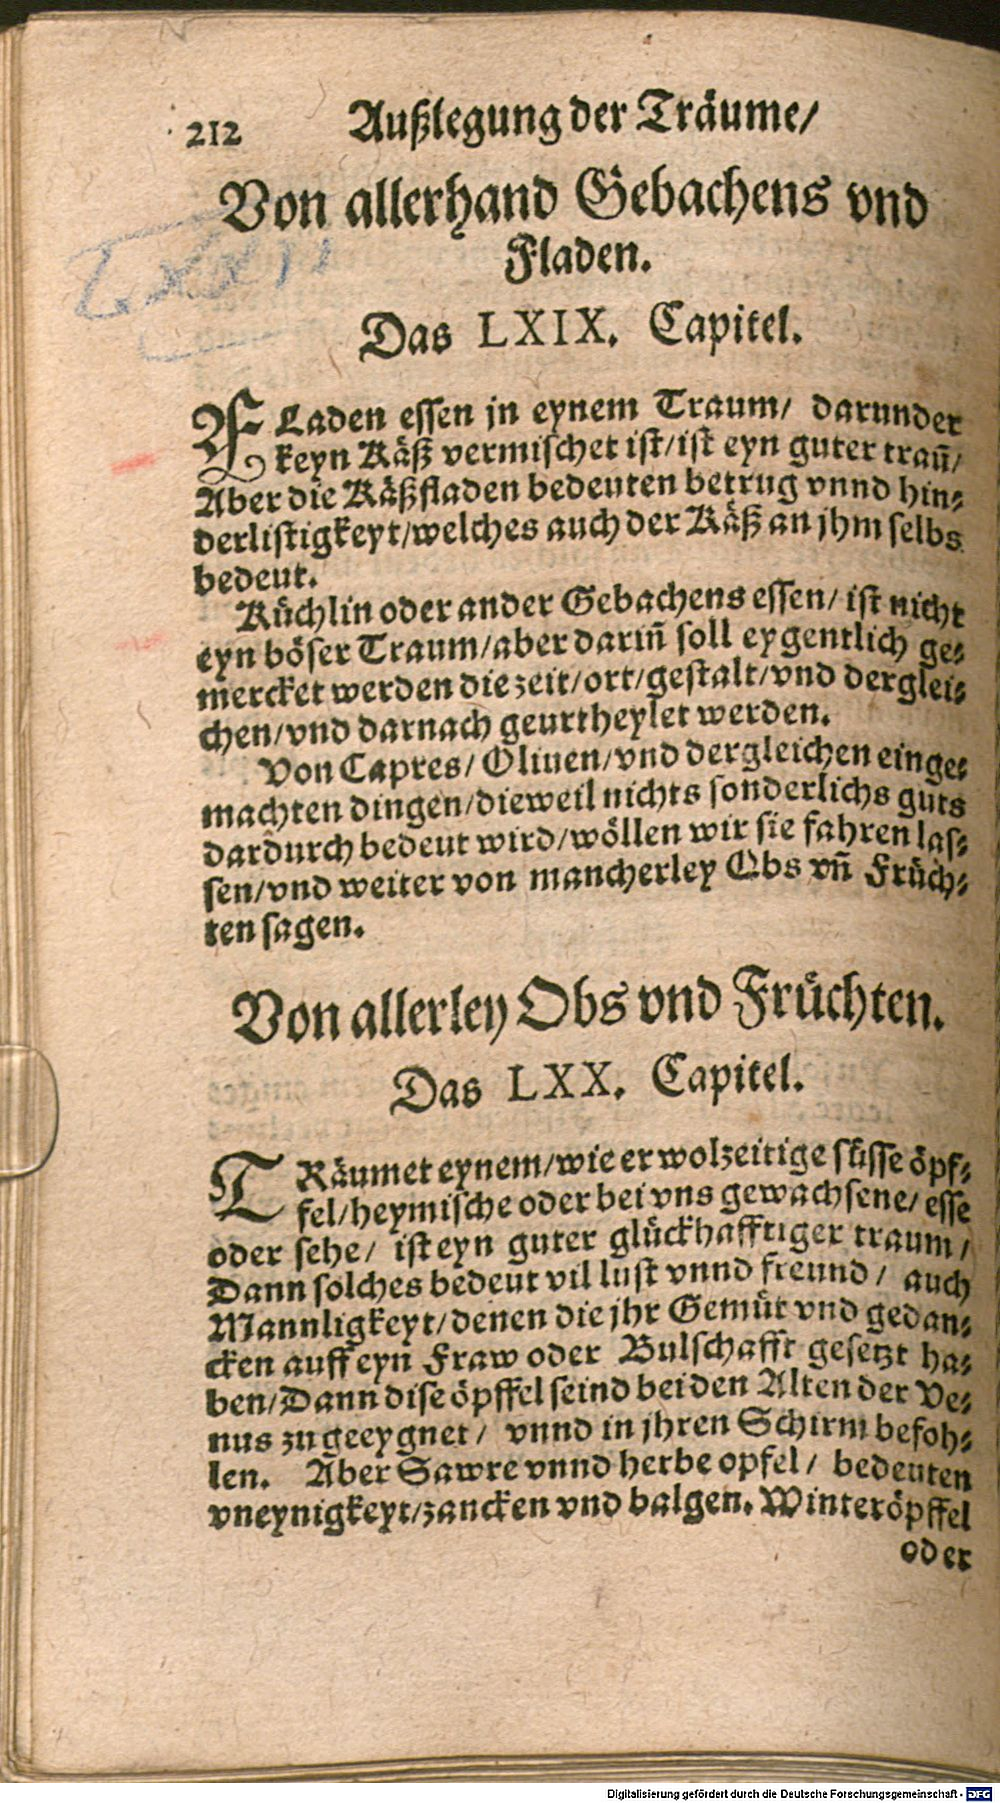 212 Außlegung der Träume/
Von allerhand Gebachens vnd
Fladen.
Das LXIX. Capitel.
FLaden essen jn eynem Traum/ darunder
keyn Käß vermischet ist/ist eyn guter traum̃/
Aber die Käßfladen bedeuten betrug vnnd hin⸗
derlistigkeyt/welches auch der Käß an jhm selbs
bedeut.
Küchlin oder ander Gebachens essen/ ist nicht
eyn böser Traum/aber dariñ soll eygentlich ge⸗
mercket werden die zeit/ort/gestalt/vnd derglei⸗
chen/vnd darnach geurtheylet werden.
Von Capres/ Oliuen/vnd dergleichen einge⸗
machten dingen/dieweil nichts sonderlichs guts
dardurch bedeut wird/wöllen wir sie fahren las⸗
sen/vnd weiter von mancherley Obs vñ Früch⸗
ten sagen.
Von allerley Obs vnd Früchten.
Das LXX. Capitel.
TRäumet eynem/wie er wolzeitige süsse öpf⸗
fel/heymische oder bei vns gewachsene/ esse
oder sehe/ ist eyn guter glückhafftiger traum/
Dann solches bedeut vil lust vnnd freund/ auch
Mannligkeyt/denen die jhr Gemüt vnd gedan⸗
cken auff eyn Fraw oder Bulschafft gesetzt ha⸗
ben/Dann dise öpffel seind bei den Alten der Ve⸗
nus zugeeygnet/ vnnd in jhren Schirm befoh⸗
len. Aber Sawre vnnd herbe opfel/ bedeuten
vneynigkeyt/zancken vnd balgen. Winteröpffel
oder
Digitalisierung gefördert durch die Deutsche Forschungsgemeinschaft - DFG